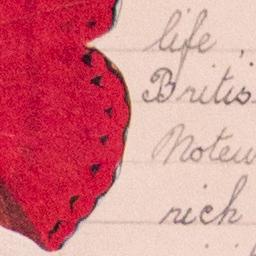 life,
Britis
Notew
rich